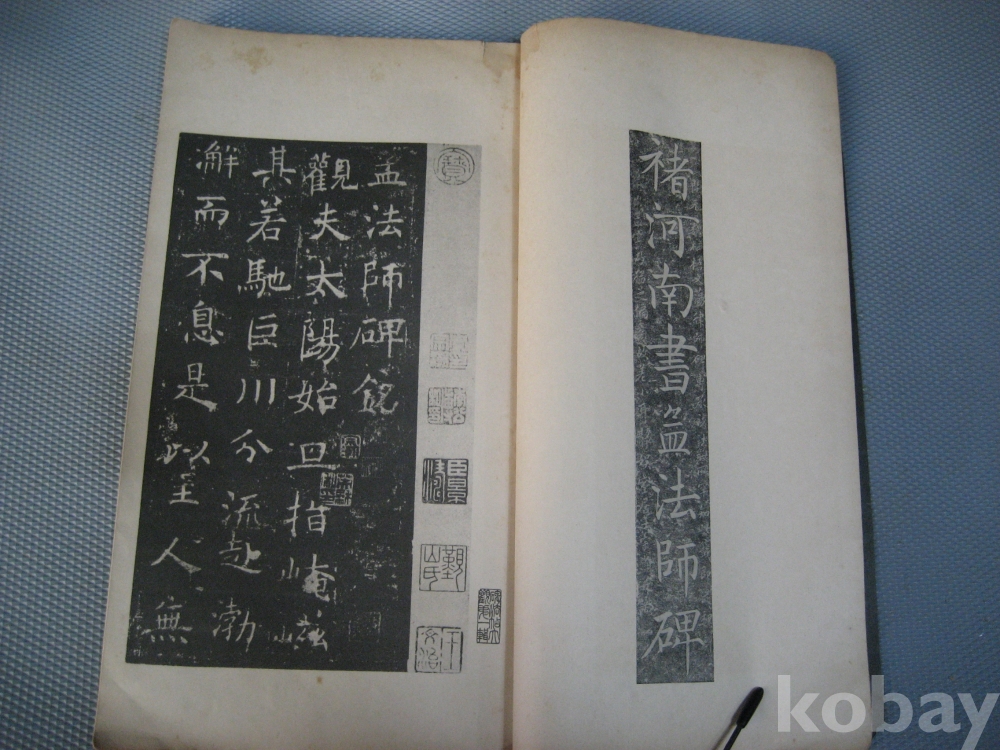 褚河南書孟法師碑
孟法師碑銘
觀夫太陽始旦指崦嵫
其若馳巨川分流趍渤
澥而不息是以至人無
kobay